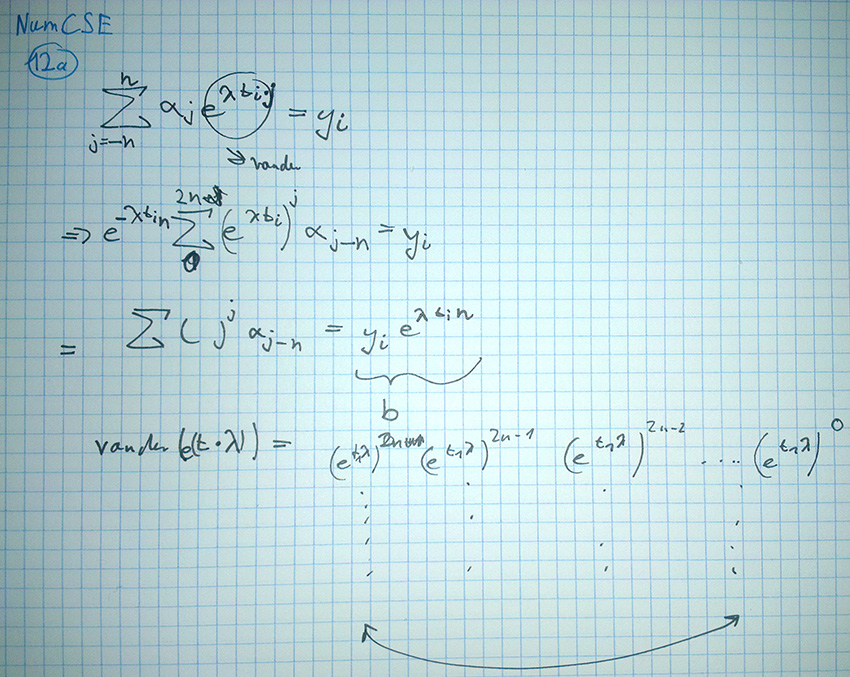 NumCSE
12a
n
∑ αⱼ e^{λtᵢj} = yᵢ
j=-n
→ vander
⇒ e^{-λtᵢn} ∑_{0}^{2n} (e^{λtᵢ})^j α_{j-n} = yᵢ
= ∑ ( )^j α_{j-n} = yᵢ e^{λtᵢn}
b
vander(e(t·λ)) = (e^{t₁λ})^{2n} (e^{t₁λ})^{2n-1} (e^{t₁λ})^{2n-2} .... (e^{t₁λ})^0